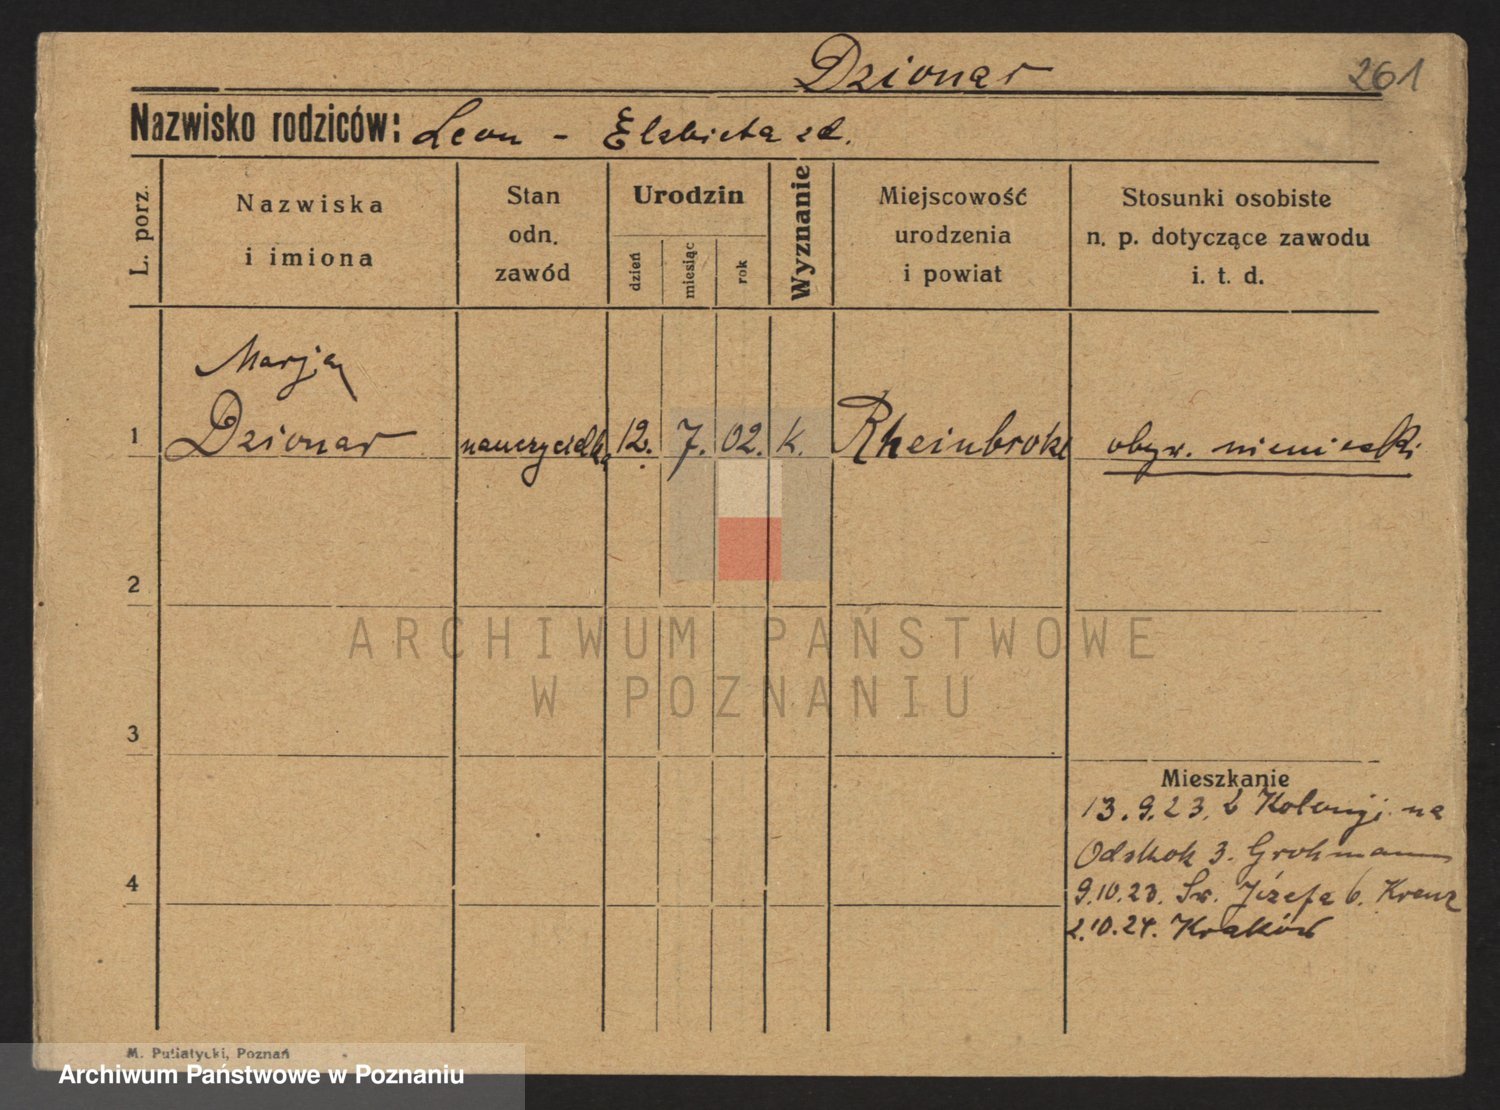 Dzionar
261
Nazwisko rodziców: Leon - Elżbieta zd.
L. porz.
Nazwiska
i imiona
Stan
odn.
zawód
Urodzin
dzień
miesiąc
rok
Wyznanie
Miejscowość
urodzenia
i powiat
Stosunki osobiste
n. p. dotyczące zawodu
i. t. d.
Marja
1 Dzionar nauczycielka 12. 7. 02. k. Rheinbroke obyw. niemiecki
2
3
4
Mieszkanie
13.9.23. z Kolonji na
Odskok 3. Grohmann
9.10.23. Św. Józefa 6. Kreuz
2.10.24. Kraków
ARCHIWUM PAŃSTWOWE
W POZNANIU
M. Putiatycki, Poznań
Archiwum Państwowe w Poznaniu